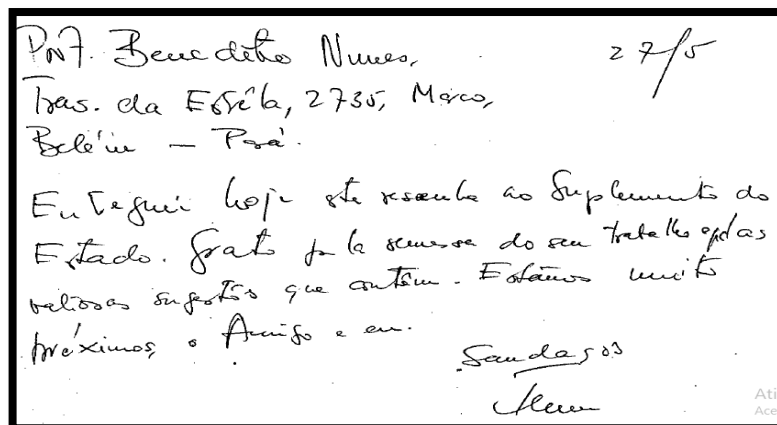 Prof. Benedito Nunes, 27/5
Trav. da Estrêla, 2735, Marco,
Belém — Pará.
Entreguei hoje sta resenha ao Suplemento do
Estado. Grato pela remessa do seu trabalho e pelas
valiosas sugestões que contém. Estamos muito
próximos, o Amigo e eu.
Saudações
Ati
Ace